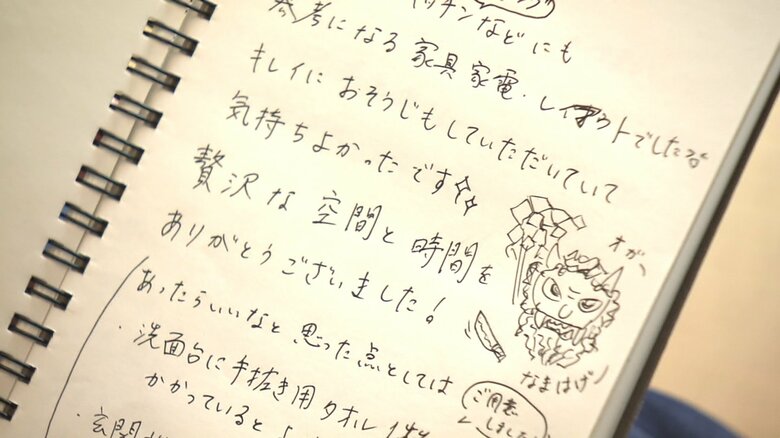 キッチンなどにも
参考になる家具家電・レイアウトでした
キレイにおそうじもしていただいていて
気持ちよかったです
贅沢な空間と時間を
ありがとうございました!
オガ
なまはげ
あったらいいなと思った点としては
・洗面台に手拭き用タオル
かかっていると
ご用意
しました
・玄関